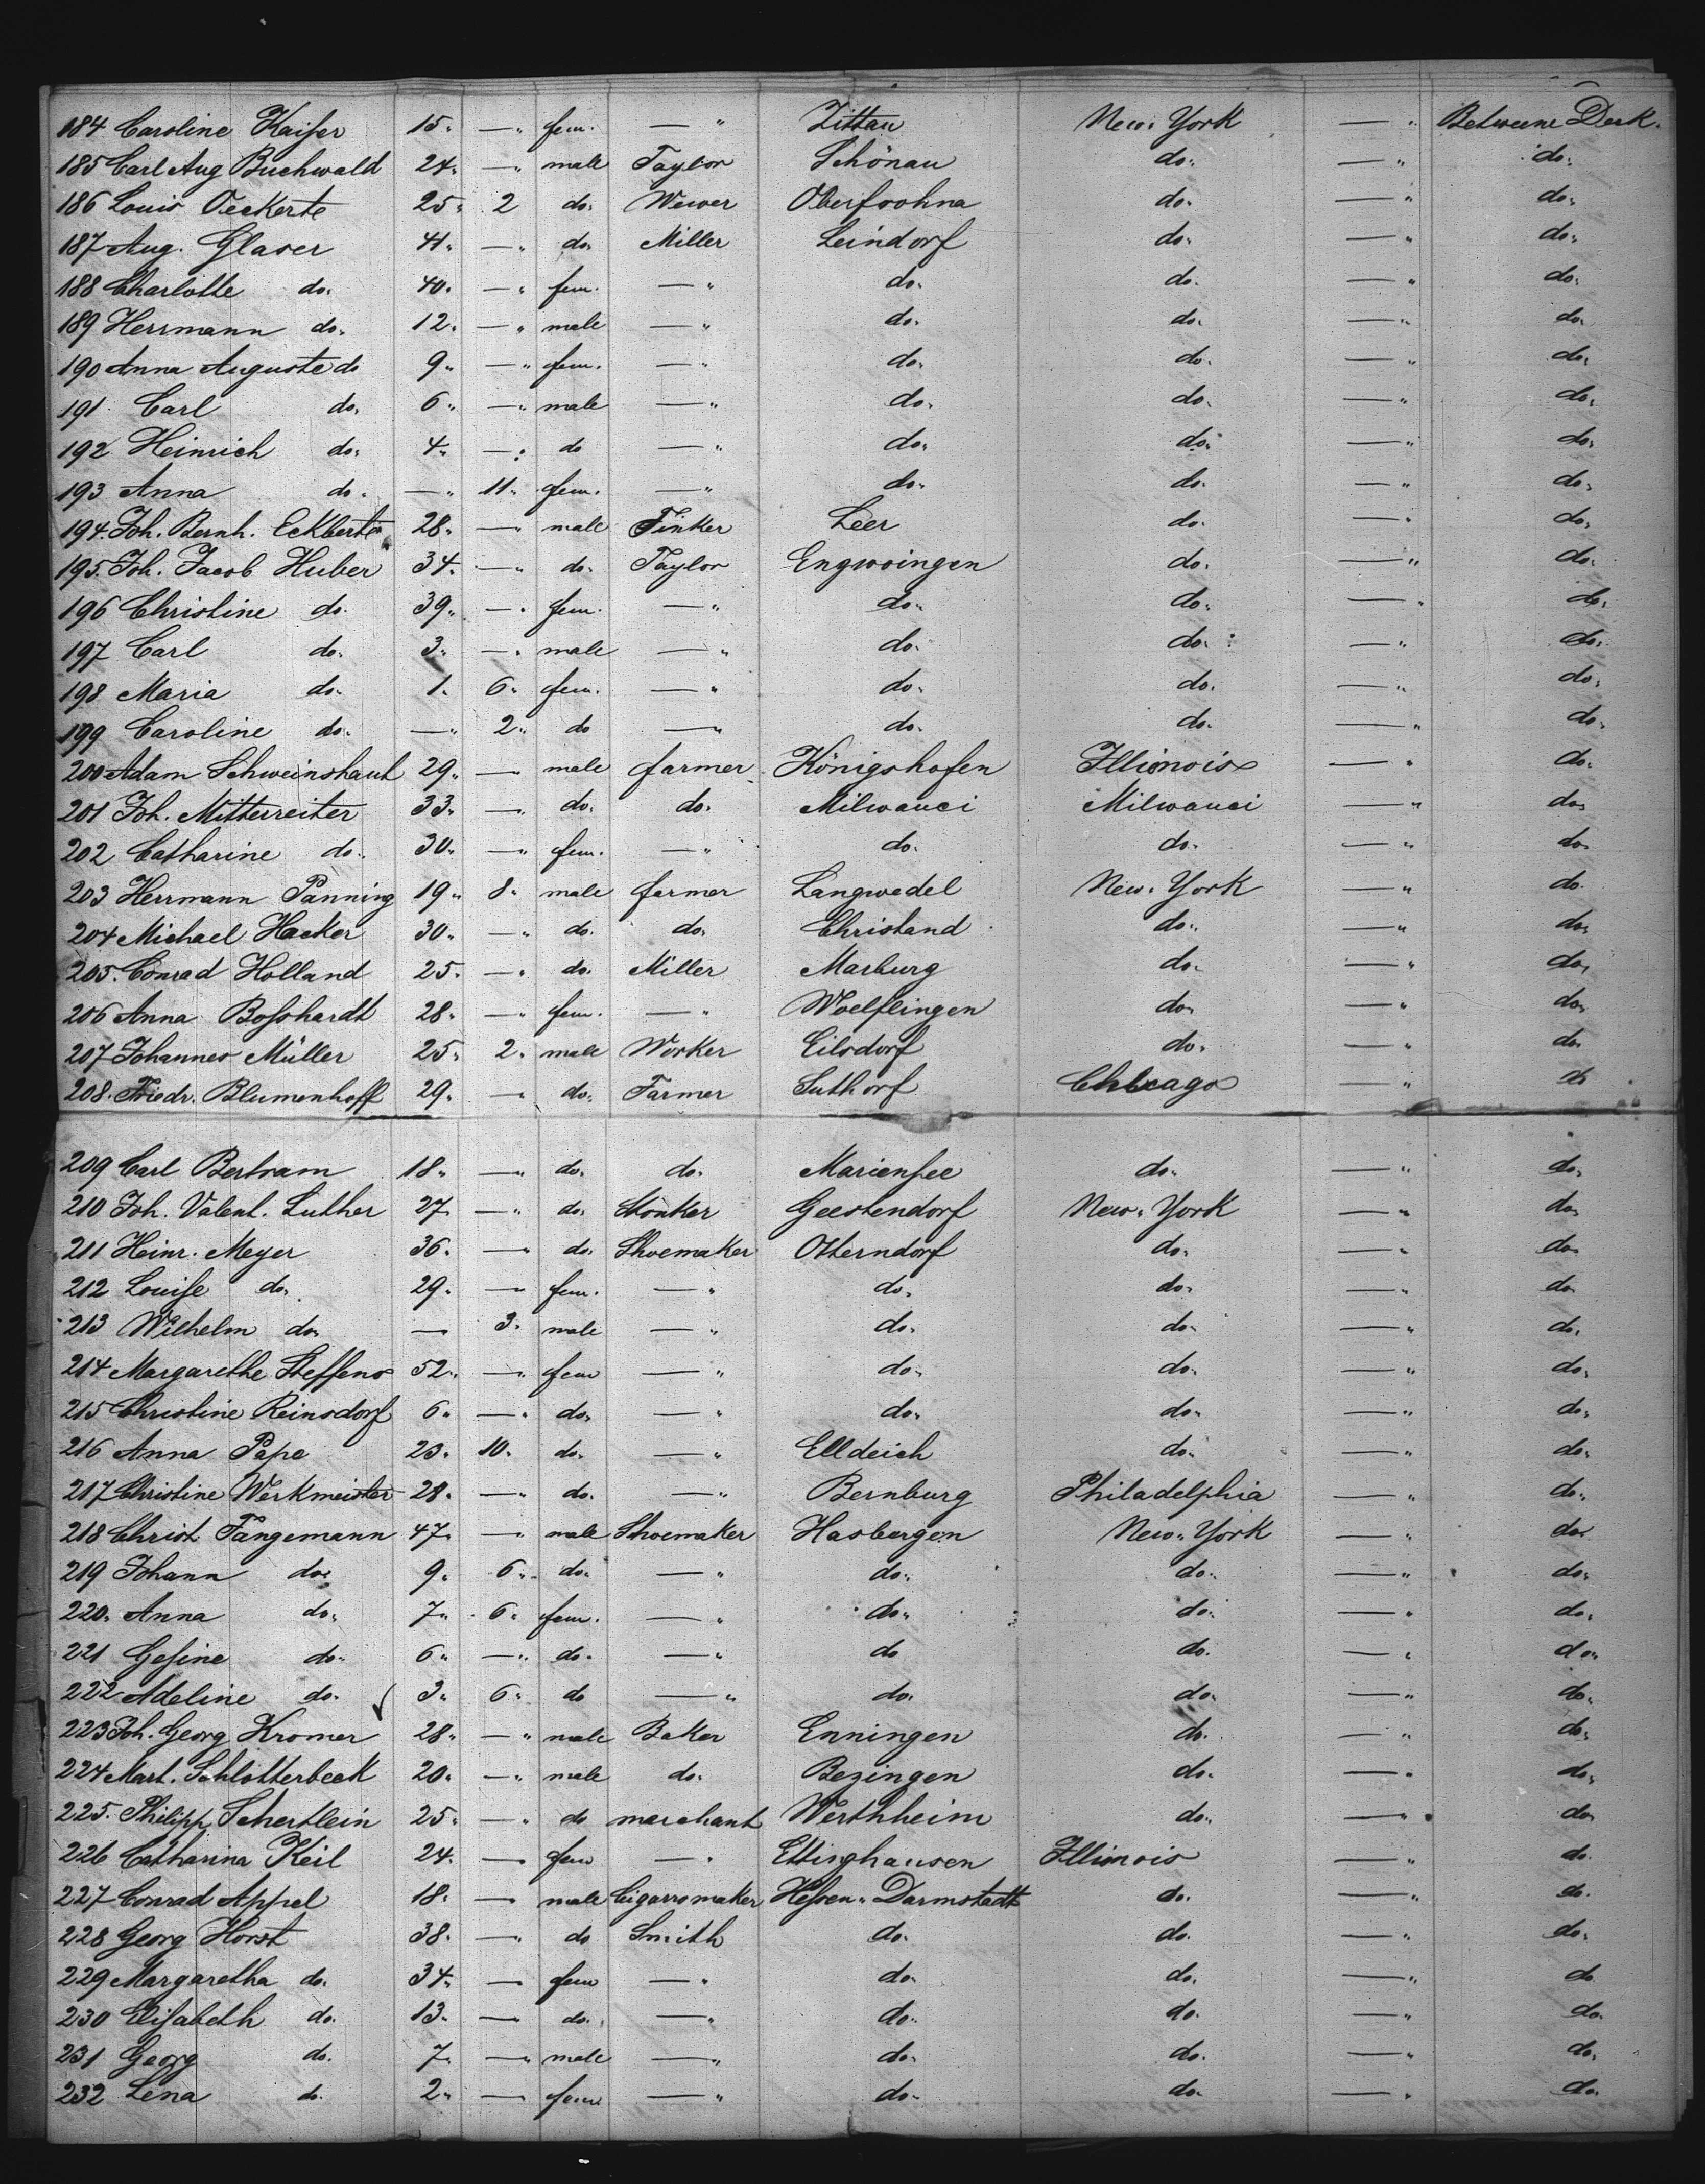 184 Caroline Kaiser 15" —" fem. —" Zittau New-York —" Betweene Deck.
185 Carl Aug Buchwald 24" —" male Taylor Schönau do. —" do.
186 Louis Oeckerte 25" 2 do. Wewer Oberfrohna do. —" do.
187 Aug. Glaser 41" —" do. Miller Leindorf do. —" do.
188 Charlotte do. 40" —" fem. —" do. do. —" do.
189 Herrmann do. 12" —" male —" do. do. —" do.
190 Anna Auguste do 9" —" fem. —" do. do. —" do.
191 Carl do. 6" —" male —" do. do. —" do.
192 Heinrich do. 4" —" do —" do. do. —" do.
193 Anna do. —" 11" fem. —" do. do. —" do.
194. Joh. Bernh. Eckberte 28" —" male Tinker Leer do. —" do.
195. Joh. Jacob Huber 34" —" do. Taylor Engwoingen do. —" do.
196 Christine do. 39" —" fem. —" do. do. —" do.
197 Carl do. 3" —" male —" do. do. —" do.
198 Maria do. 1" 6" fem. —" do. do. —" do.
199 Caroline do. —" 2" do —" do. do. —" do.
200 Adam Schweinshaut 29" — male farmer Königshofen Illionois —" do.
201 Joh. Mitterreiter 33" —" do. do. Milwauci Milwauci —" do.
202 Catharine do. 30" —" fem. —" do. do. —" do.
203 Herrmann Panning 19" 8" male farmer Langwedel New-York —" do.
204 Michael Hacker 30" —" do. do. Christand do. —" do.
205. Conrad Holland 25" —" do. Miller Marburg do. —" do.
206 Anna Boshardt 28" —" fem. —" Woelflingen do. —" do.
207 Johannes Müller 25" 2" male Worker Eilsdorf do. —" do.
208. Friedr. Blumenhoff 29" —" do. Farmer Suthorf Chicago —" do.
209 Carl Bertram 18" —" do. do. Mariensee do. —" do.
210 Joh. Valent. Luther 27 —" do. Geestendorf New-York —" do.
211 Heinr. Meyer 36" —" do. Shoemaker Otterndorf do. —" do.
212 Louise do. 29" — fem. —" do. do. —" do.
213 Wilhelm do. — 3" male —" do. do. —" do.
214 Margarethe Steffens 52" —" fem —" do. do. —" do.
215 Christine Reinsdorf 6" —" do. —" do. do. —" do.
216 Anna Pape 23" 10" do. —" Elldeich do. —" do.
217 Christine Werkmeister 28" —" do. —" Bernburg Philadelphia —" do.
218 Christ Tangemann 47" —" male Shoemaker Hasbergen New-York —" do.
219 Johann do. 9" 6" do. —" do. do. —" do.
220. Anna do. 7" 6" fem. —" do. do. —" do.
221 Gesine do. 6" —" do. —" do do. —" do.
222 Adeline do. 3" 6" do —" do. do. —" do.
223 Joh. Georg Kromer 28" —" male Baker Enningen do. —" do.
224 Mart. Schlotterbeck 20" —" male do. Bezingen do. —" do.
225. Philipp Schertlein 25" —" do merchant Werthheim do. —" do.
226 Catharina Keil 24" — fem —" Ettinghausen Illionois —" do.
227 Conrad Appel 18" — male Cigarromaker Hessen-Darmstadt do. —" do.
228 Georg Horst 38" —" do Smith do. do. —" do.
229 Margaretha do. 34" — fem —" do. do. —" do.
230 Elisabeth do. 13" — do. —" do. do. —" do.
231 Georg do. 7" —" male —" do. do. —" do.
232 Lena do. 2" — fem —" do. do. —" do.